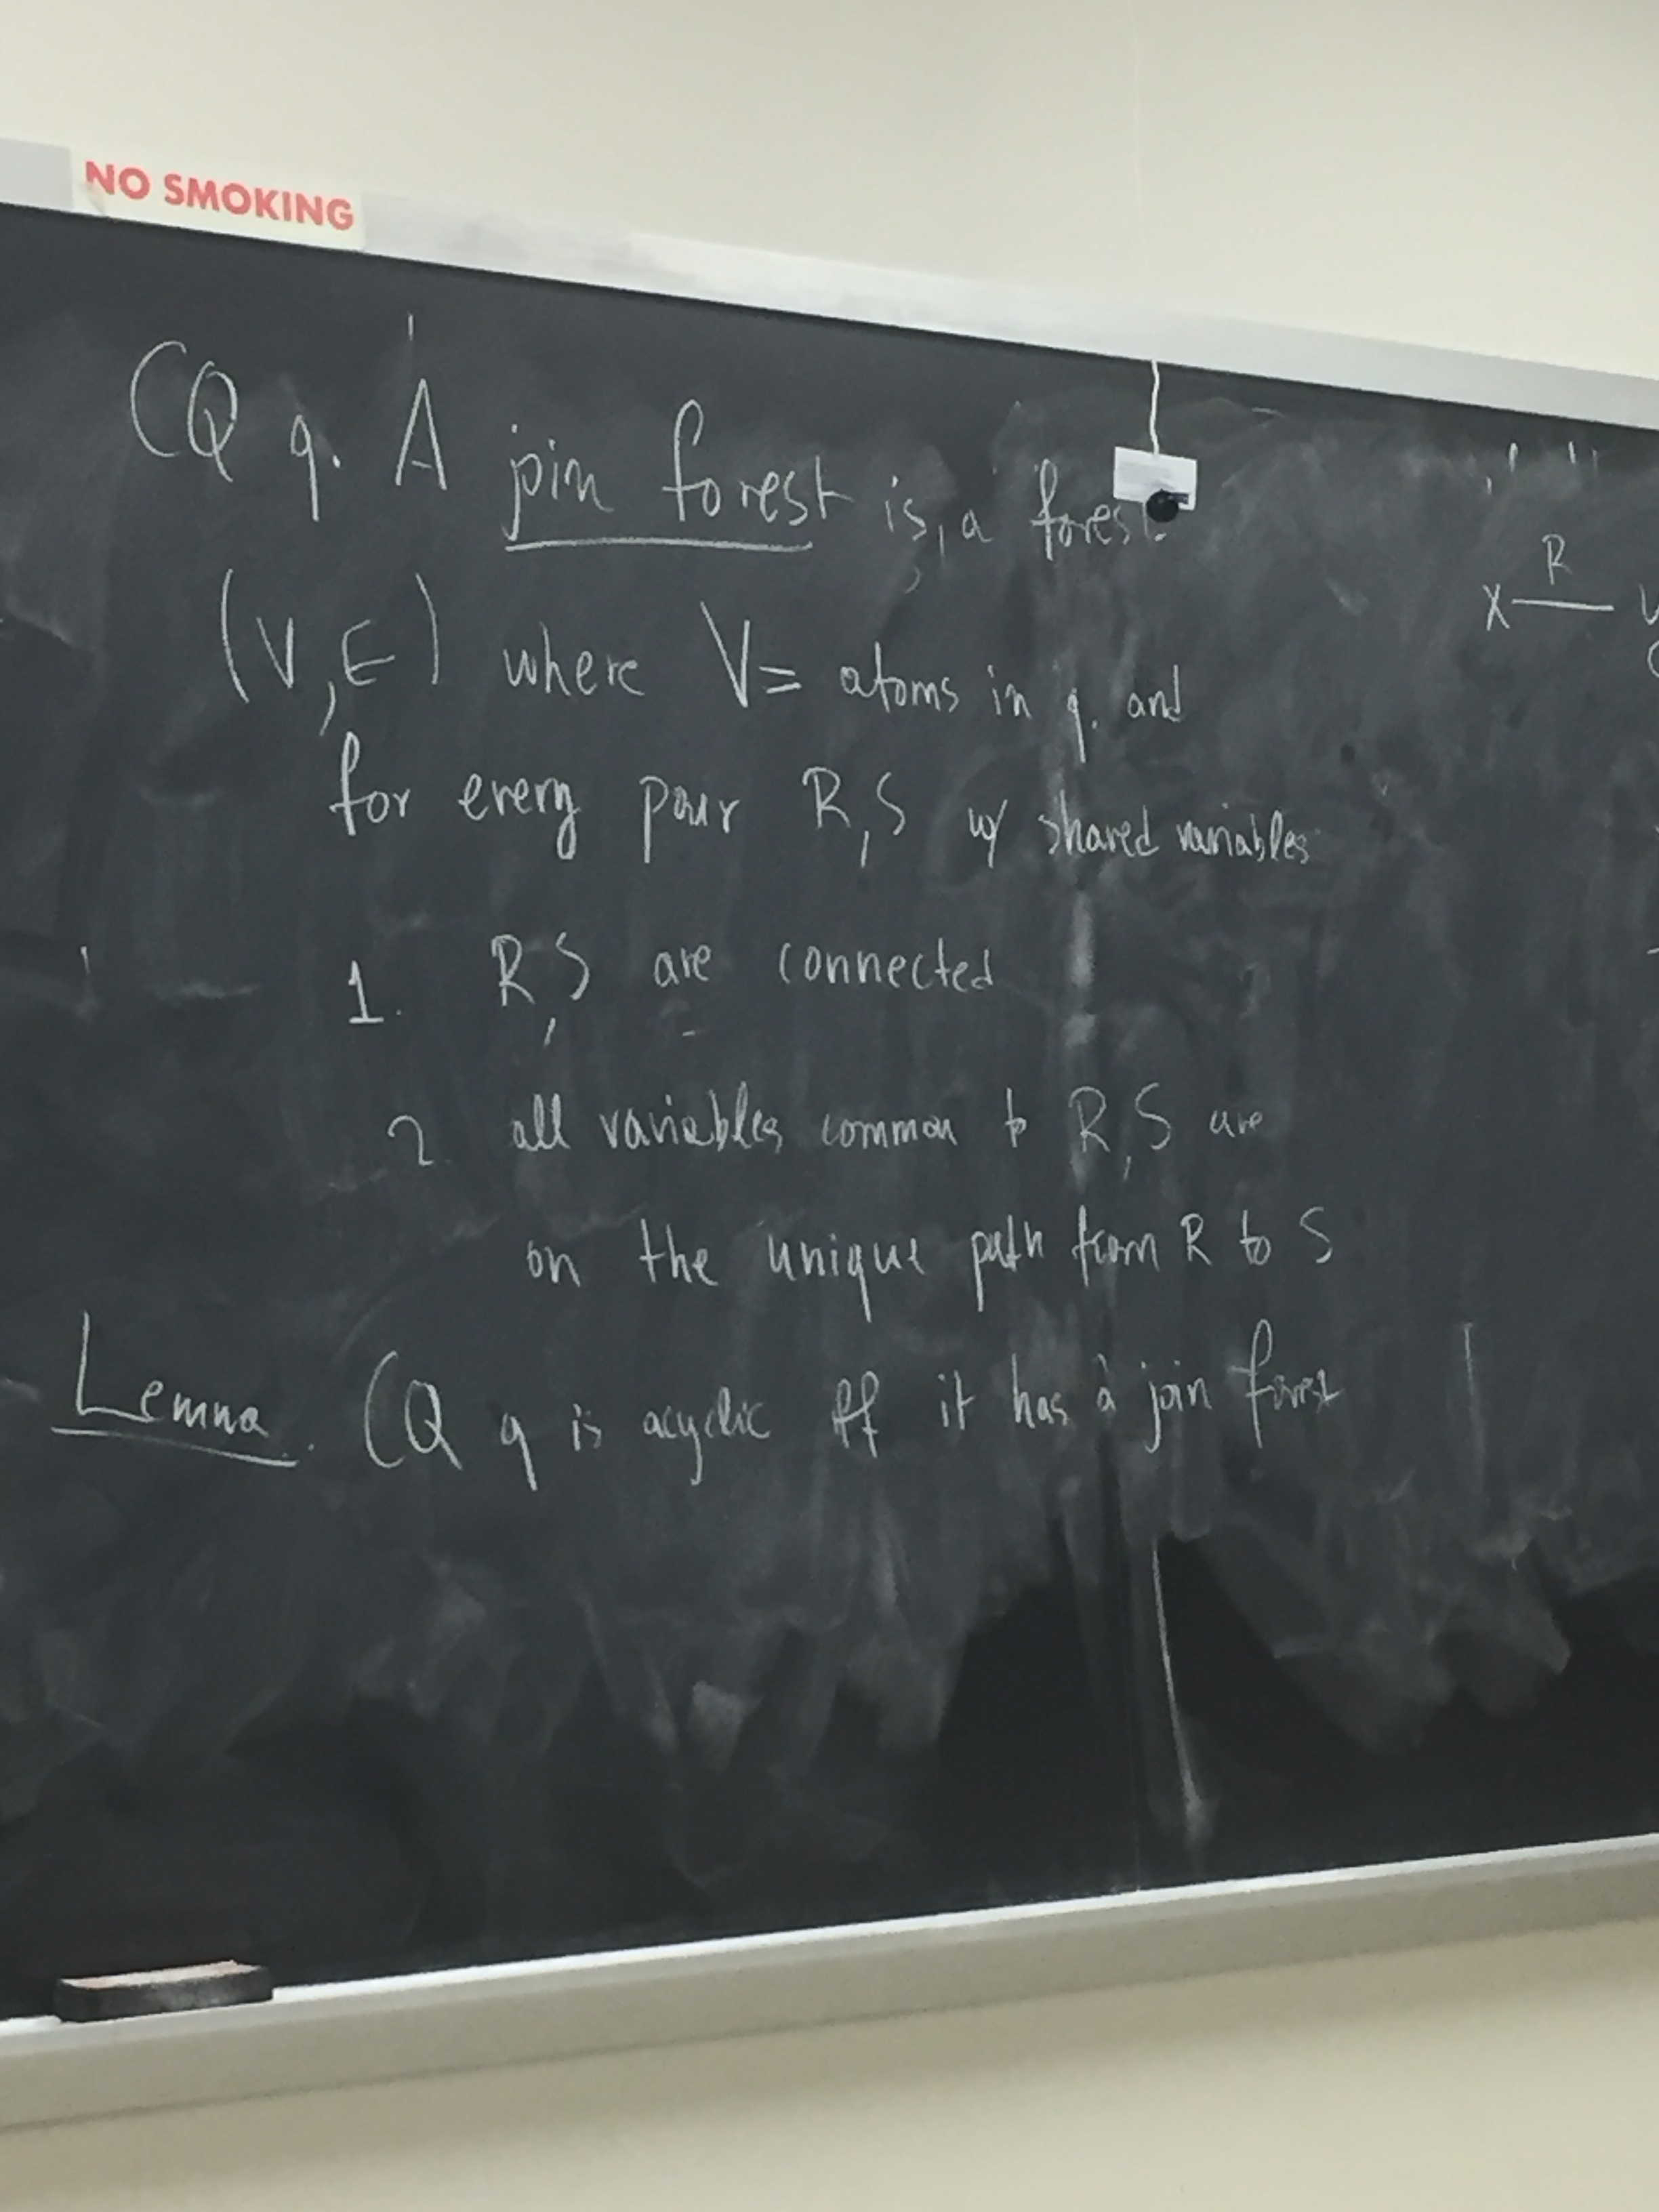 NO SMOKING
CQ q. A join forest is a forest
(V,E) where V= atoms in q. and
for every pair R,S w/ shared variables
1. R,S are connected
2. all variables common to R,S are
on the unique path from R to S
Lemma. CQ q is acyclic iff it has a join forest
R
X